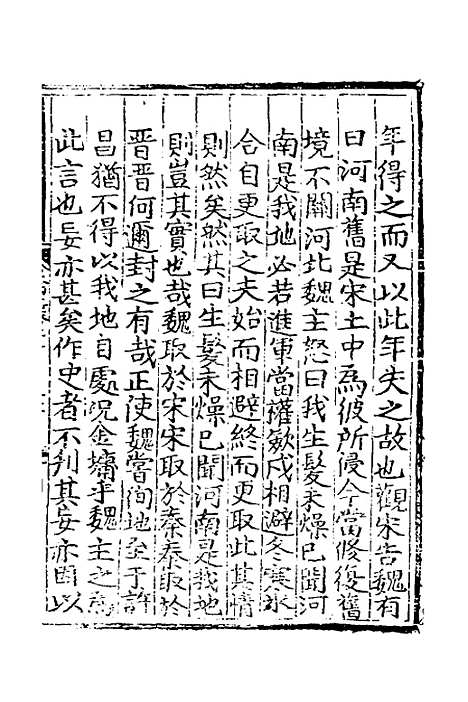 年得之而又以此年失之故也觀宋告魏有
曰河南舊是宋土中爲彼所侵今當修復舊
境不關河北魏主怒曰我生髮未燥已聞河
南是我地必若進軍當權斂戍相避冬寒氷
合自更取之夫始而相避終而更取此其情
則然矣然其曰生髮未燥已聞河南是我地
則豈其實也哉魏取於宋宋取於秦秦取於
晉晉何邇封之有哉正使魏嘗徇地至于許
昌猶不得以我地自處況金墉乎魏主之爲
此言也妄亦甚矣作史者不判其妄亦因以